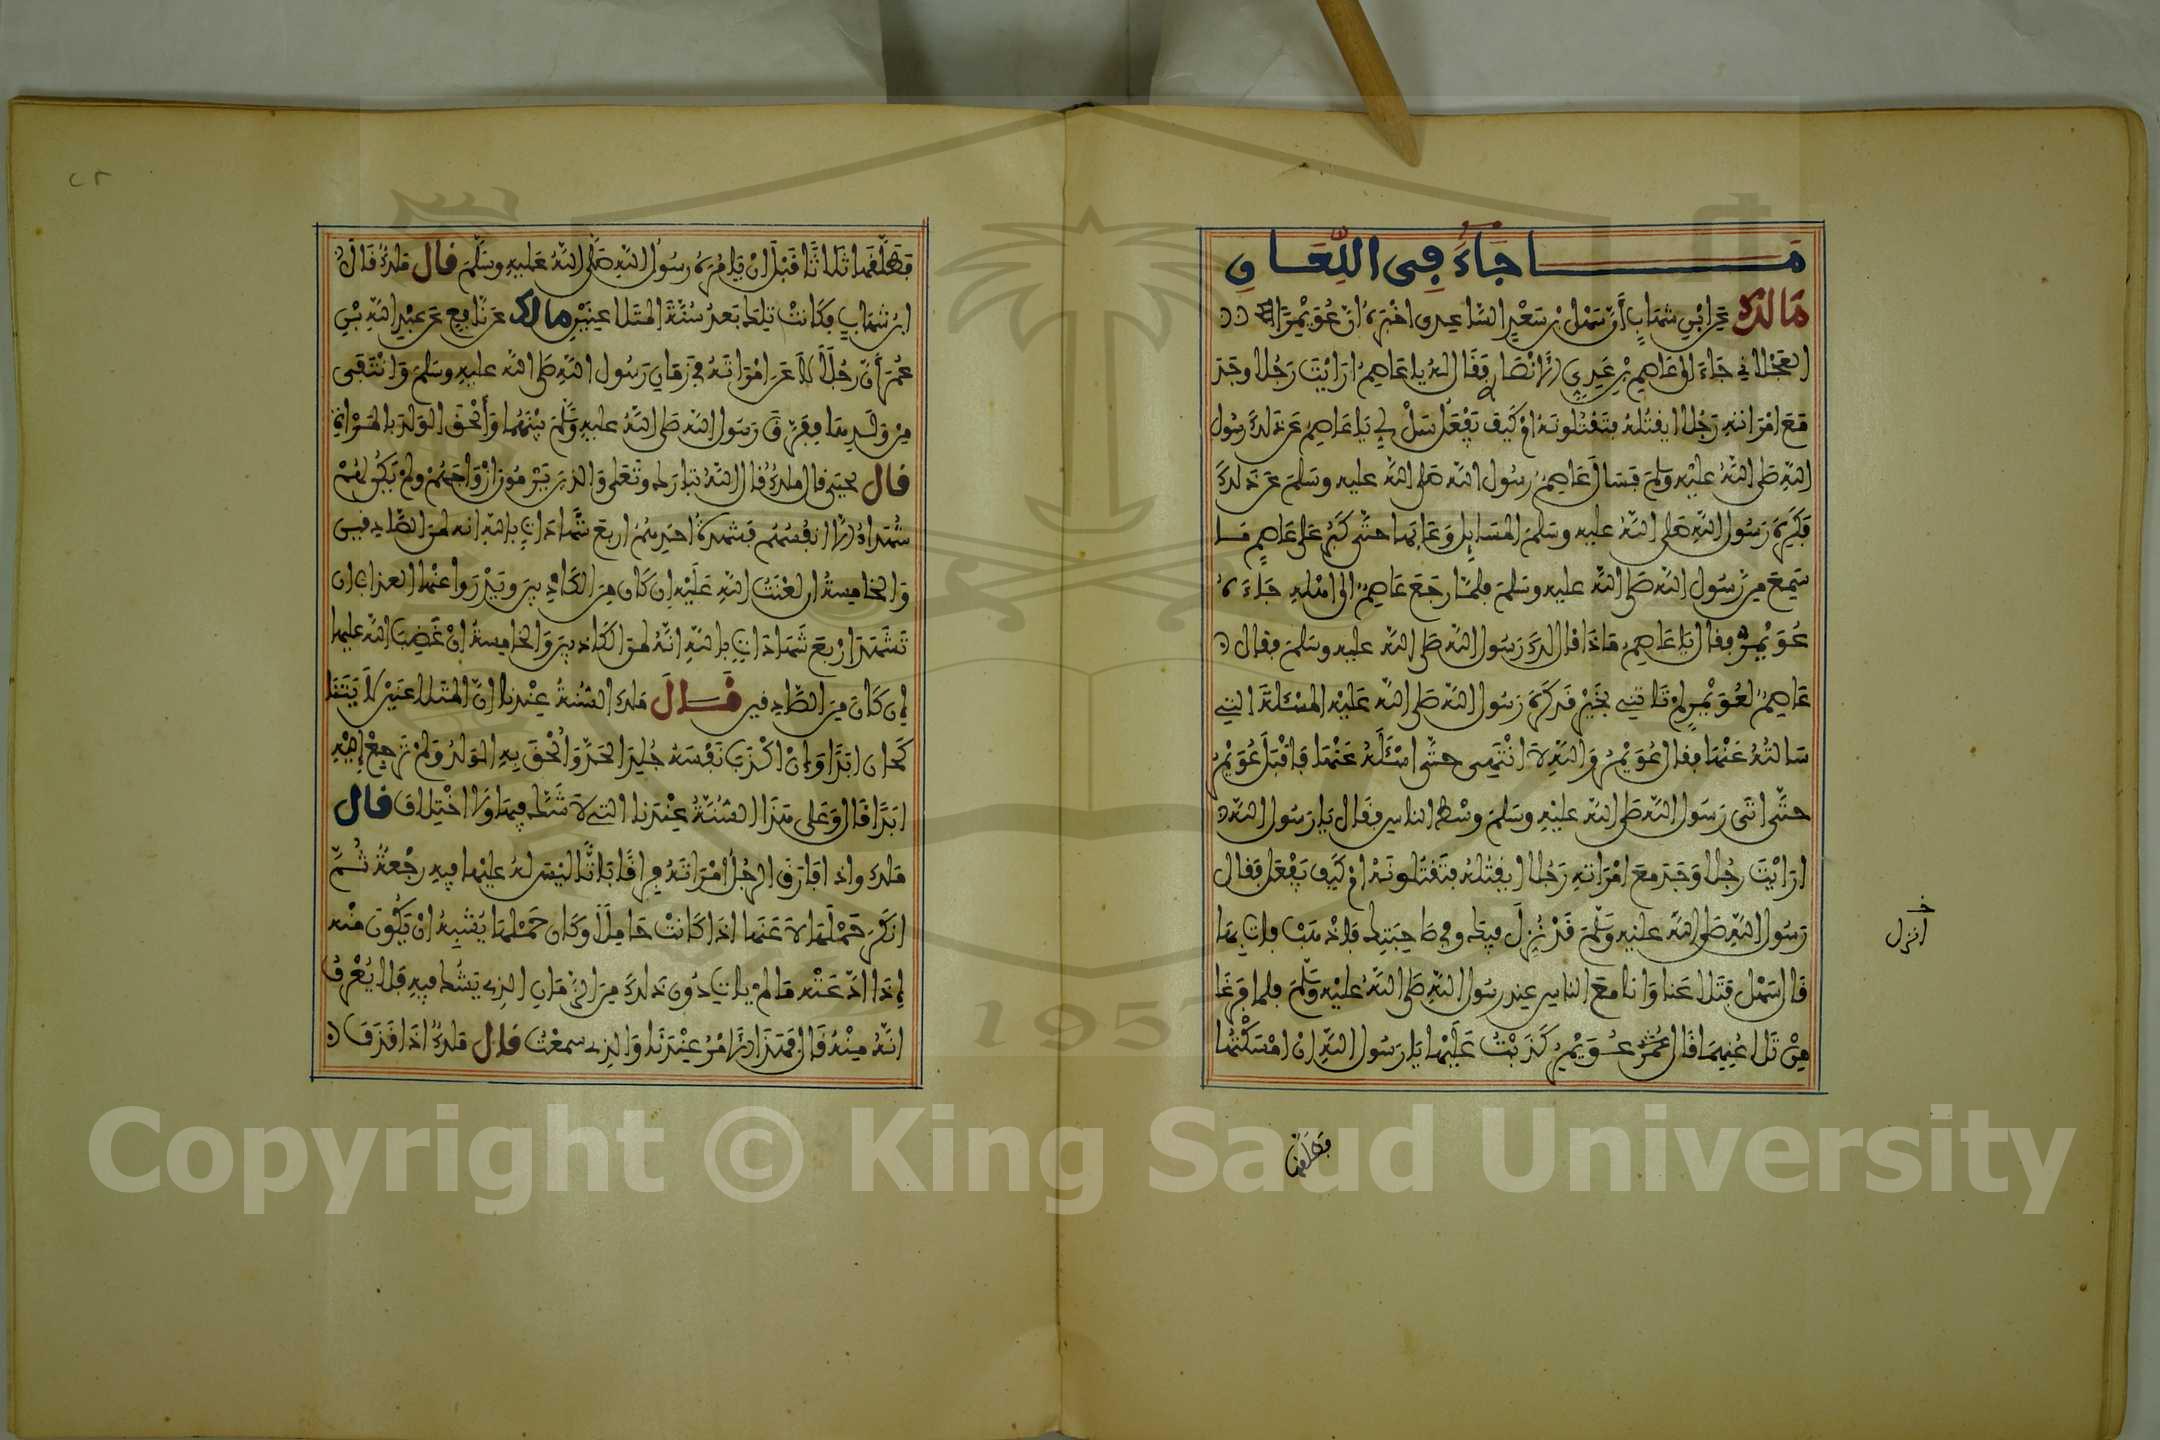 ما جاء في اللعان
مالك عن ابن شهاب أن سهل بن سعد الساعدي اخبره ان عويمرا
العجلاني جاء الى عاصم بن عدي الانصاري فقال له يا عاصم ارايت رجلا وجد
مع امراته رجلا ايقتله فتقتلونه ام كيف يفعل سل لي يا عاصم عن ذلك رسول
الله صلى الله عليه وسلم فسال عاصم رسول الله صلى الله عليه وسلم عن ذلك
فكره رسول الله صلى الله عليه وسلم المسايل وعابها حتى كبر على عاصم ما
سمع من رسول الله صلى الله عليه وسلم فلما رجع عاصم الى اهله جاءه
عويمر فقال يا عاصم ماذا قال لك رسول الله صلى الله عليه وسلم فقال
عاصم لعويمر لم تاتني بخير قد كره رسول الله صلى الله عليه المسئلة التي
سالته عنها فقال عويمر والله لا انتهي حتى اسئله عنها فاقبل عويمر
حتى اتى رسول الله صلى الله عليه وسلم وسط الناس فقال يا رسول الله
ارايت رجلا وجد مع امراته رجلا ايقتله فتقتلونه ام كيف يفعل فقال
رسول الله صلى الله عليه وسلم قد نزل فيك وفي صاحبتك فاذهب فات بها
قال سهل فتلاعنا وانا مع الناس عند رسول الله صلى الله عليه وسلم فلما فرغا
من تلاعنهما قال عويمر كذبت عليها يا رسول الله ان امسكتها
انزل
فطلقها
فطلقها ثلاثا قبل ان يامره رسول الله صلى الله عليه وسلم قال ملك قال
ابن شهاب فكانت تلك بعد سنة المتلاعنين مالك عن نافع عن عبد الله بن
عمر أن رجلا لاعن امراته في زمان رسول الله صلى الله عليه وسلم وانتفى
من ولدها ففرق رسول الله صلى الله عليه وسلم بينهما وألحق الولد بالمراة
قال يحيى قال ملك قال الله تبارك وتعلى والذين يرمون ازواجهم ولم يكن لهم
شهداء الا انفسهم فشهدة احدهم اربع شهادات بالله انه لمن الصادقين
والخامسة ان لعنت الله عليه ان كان من الكاذبين ويدرؤا عنها العذاب ان
تشهد اربع شهادات بالله انه لمن الكاذبين والخامسة ان غضب الله عليها
ان كان من الصادقين قال ملك السنة عندنا ان المتلاعنين لا يتنا
كحان ابدا وان اكذب نفسه جلد الحد والحق به الولد ولم ترجع اليه
ابدا قال وعلى هذا السنة عندنا التي لا شك فيها ولا اختلاف قال
ملك واذا فارق الرجل امراته فراقا باتا ليس له عليها فيه رجعة ثم
انكر حملها لاعنها اذا كانت حاملا وكان حملها يشبه ان يكون منه
اذا ادعته ما لم يات دون ذلك من الزمان الذي يشك فيه فلا يعرف
انه منه قال فهذا الامر عندنا والذي سمعت قال ملك اذا قذف
٢٢
Copyright © King Saud University
1957